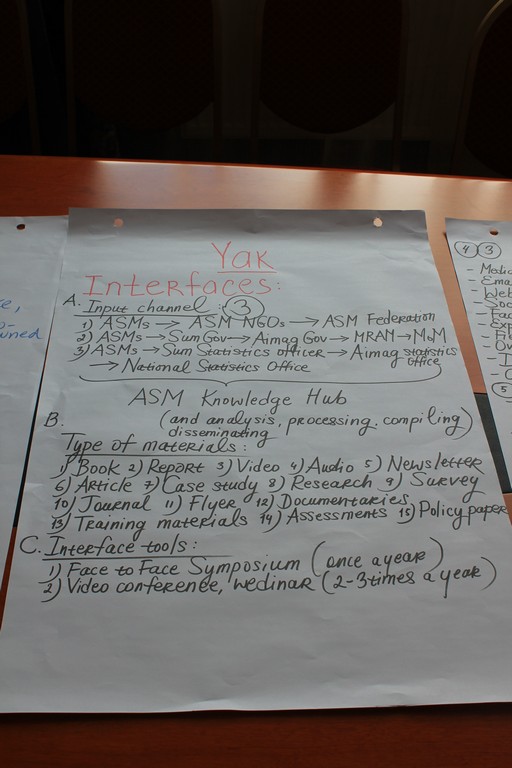 Yak
Interfaces:
A. Input channel: 3
1) ASMs → ASM NGOs → ASM Federation
2) ASMs → Sum Gov → Aimag Gov → MRAM → MoM
3) ASMs → Sum Statistics officer → Aimag statistics office
→ National Statistics Office
ASM Knowledge Hub
B. (and analysis, processing, compiling)
disseminating
Type of materials:
1) Book 2) Report 3) Video 4) Audio 5) Newsletter
6) Article 7) Case study 8) Research 9) Survey
10) Journal 11) Flyer 12) Documentaries
13) Training materials 14) Assessments 15) Policy paper
C. Interface tools:
1) Face to Face Symposium (once a year)
2) Video conference, wedinar (2-3 times a year)
4 3
- Media
- Ema
- Web
- Soc
- Fac
- Exp
- F
- Ow
- I
- C
5